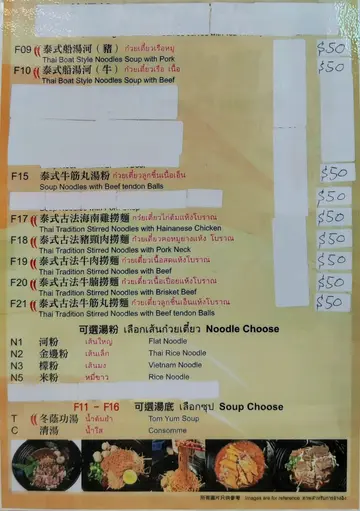 F09 泰式船湯河(豬) ก๋วยเตี๋ยวเรือหมู $50
Thai Boat Style Noodles Soup with Pork
F10 泰式船湯河(牛) ก๋วยเตี๋ยวเรือ เนื้อ $50
Thai Boat Style Noodles Soup with Beef
F15 泰式牛筋丸湯粉 ก๋วยเตี๋ยวลูกชิ้นเนื้อเอ็น $50
Soup Noodles with Beef tendon Balls
F17 泰式古法海南雞撈麵 ก๋วยเตี๋ยวไก่ต้มแห้งโบราณ $50
Thai Tradition Stirred Noodles with Hainanese Chicken
F18 泰式古法豬頸肉撈麵 ก๋วยเตี๋ยวคอหมูย่างแห้ง โบราณ $50
Thai Tradition Stirred Noodles with Pork Neck
F19 泰式古法牛肉撈麵 ก๋วยเตี๋ยวเนื้อสดแห้งโบราณ $50
Thai Tradition Stirred Noodles with Beef
F20 泰式古法牛腩撈麵 ก๋วยเตี๋ยวเนื้อเปื่อยแห้งโบราณ $50
Thai Tradition Stirred Noodles with Brisket Beef
F21 泰式古法牛筋丸撈麵 ก๋วยเตี๋ยวลูกชิ้นเอ็นแห้งโบราณ $50
Thai Tradition Stirred Noodles with Beef tendon Balls
可選湯粉 เลือกเส้นก๋วยเตี๋ยว Noodle Choose
N1 河粉 เส้นใหญ่ Flat Noodle
N2 金邊粉 เส้นเล็ก Thai Rice Noodle
N3 檬粉 เส้นมง Vietnam Noodle
N5 米粉 หมี่ขาว Rice Noodle
F11 - F16 可選湯底 เลือกซุป Soup Choose
T 冬蔭功湯 น้ำต้มยำ Tom Yum Soup
C 清湯 น้ำใส Consomme
所有圖片只供參考 Images are for reference